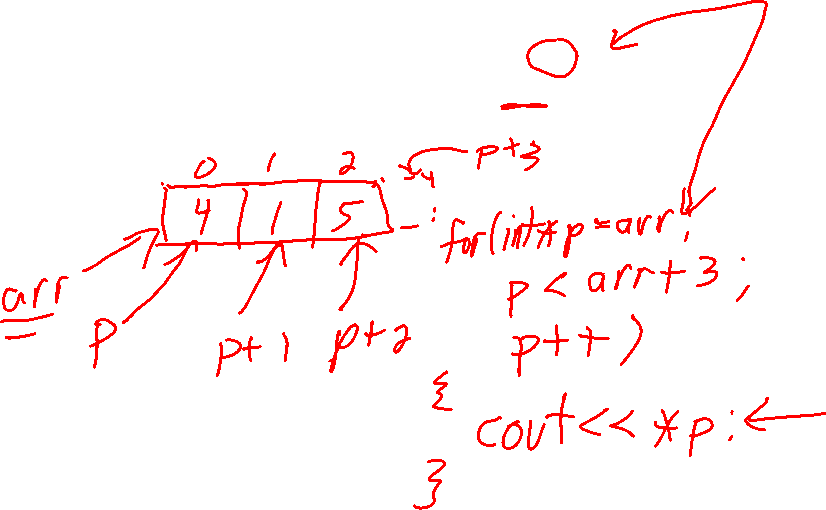 0 1 2
p+3
4 1 5
arr
p
p+1
p+2
for(int*p=arr;
p<arr+3;
p++)
{
cout<<*p;
}